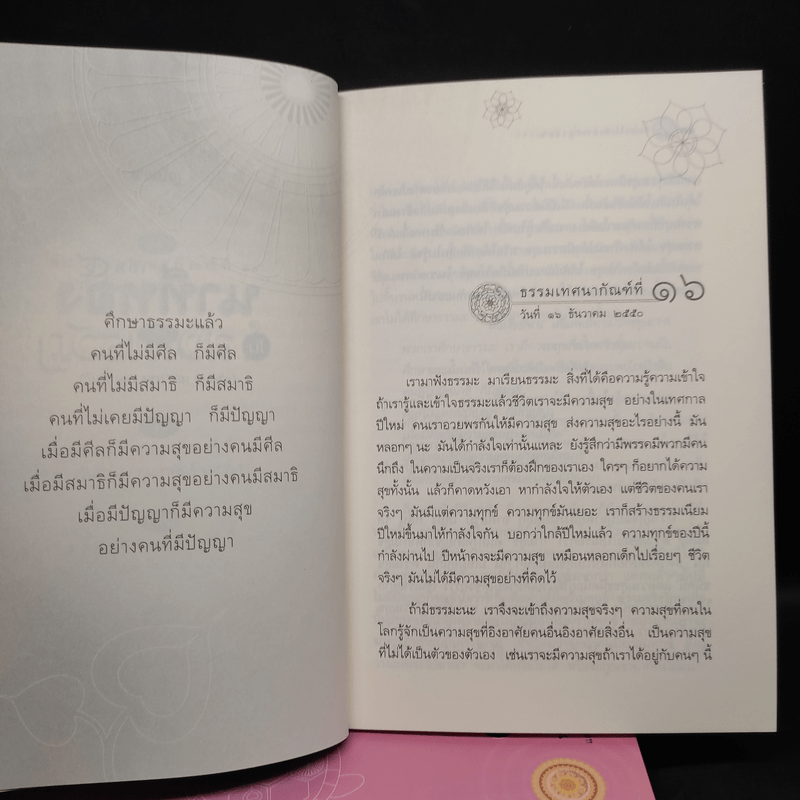 ศึกษาธรรมะแล้ว
คนที่ไม่มีศีล ก็มีศีล
คนที่ไม่มีสมาธิ ก็มีสมาธิ
คนที่ไม่เคยมีปัญญา ก็มีปัญญา
เมื่อมีศีลก็มีความสุขอย่างคนมีศีล
เมื่อมีสมาธิก็มีความสุขอย่างคนมีสมาธิ
เมื่อมีปัญญาก็มีความสุข
อย่างคนที่มีปัญญา
ธรรมเทศนากัณฑ์ที่ ๑๖
วันที่ ๑๖ ธันวาคม ๒๕๕๐
เรามาฟังธรรมะ มาเรียนธรรมะ สิ่งที่ได้คือความรู้ความเข้าใจ
ถ้าเรารู้และเข้าใจธรรมะแล้วชีวิตเราจะมีความสุข อย่างในเทศกาล
ปีใหม่ คนเราอวยพรกันให้มีความสุข ส่งความสุขอะไรอย่างนี้ มัน
หลอกๆ นะ มันได้กำลังใจเท่านั้นแหละ ยังรู้สึกว่ามีพรรคมีพวกมีคน
นึกถึง ในความเป็นจริงเราก็ต้องฝึกของเราเอง ใครๆ ก็อยากได้ความ
สุขทั้งนั้น แล้วก็คาดหวังเอา หากำลังใจให้ตัวเอง แต่ชีวิตของคนเรา
จริงๆ มันมีแต่ความทุกข์ ความทุกข์มันเยอะ เราก็สร้างธรรมเนียม
ปีใหม่ขึ้นมาให้กำลังใจกัน บอกว่าใกล้ปีใหม่แล้ว ความทุกข์ของปีนี้
กำลังผ่านไป ปีหน้าคงจะมีความสุข เหมือนหลอกเด็กไปเรื่อยๆ ชีวิต
จริงๆ มันไม่ได้มีความสุขอย่างที่คิดไว้
ถ้ามีธรรมะนะ เราจึงจะเข้าถึงความสุขจริงๆ ความสุขที่คนใน
โลกรู้จักเป็นความสุขที่อิงอาศัยคนอื่นอิงอาศัยสิ่งอื่น เป็นความสุข
ที่ไม่ได้เป็นตัวของตัวเอง เช่นเราจะมีความสุขถ้าเราได้อยู่กับคนๆ นี้